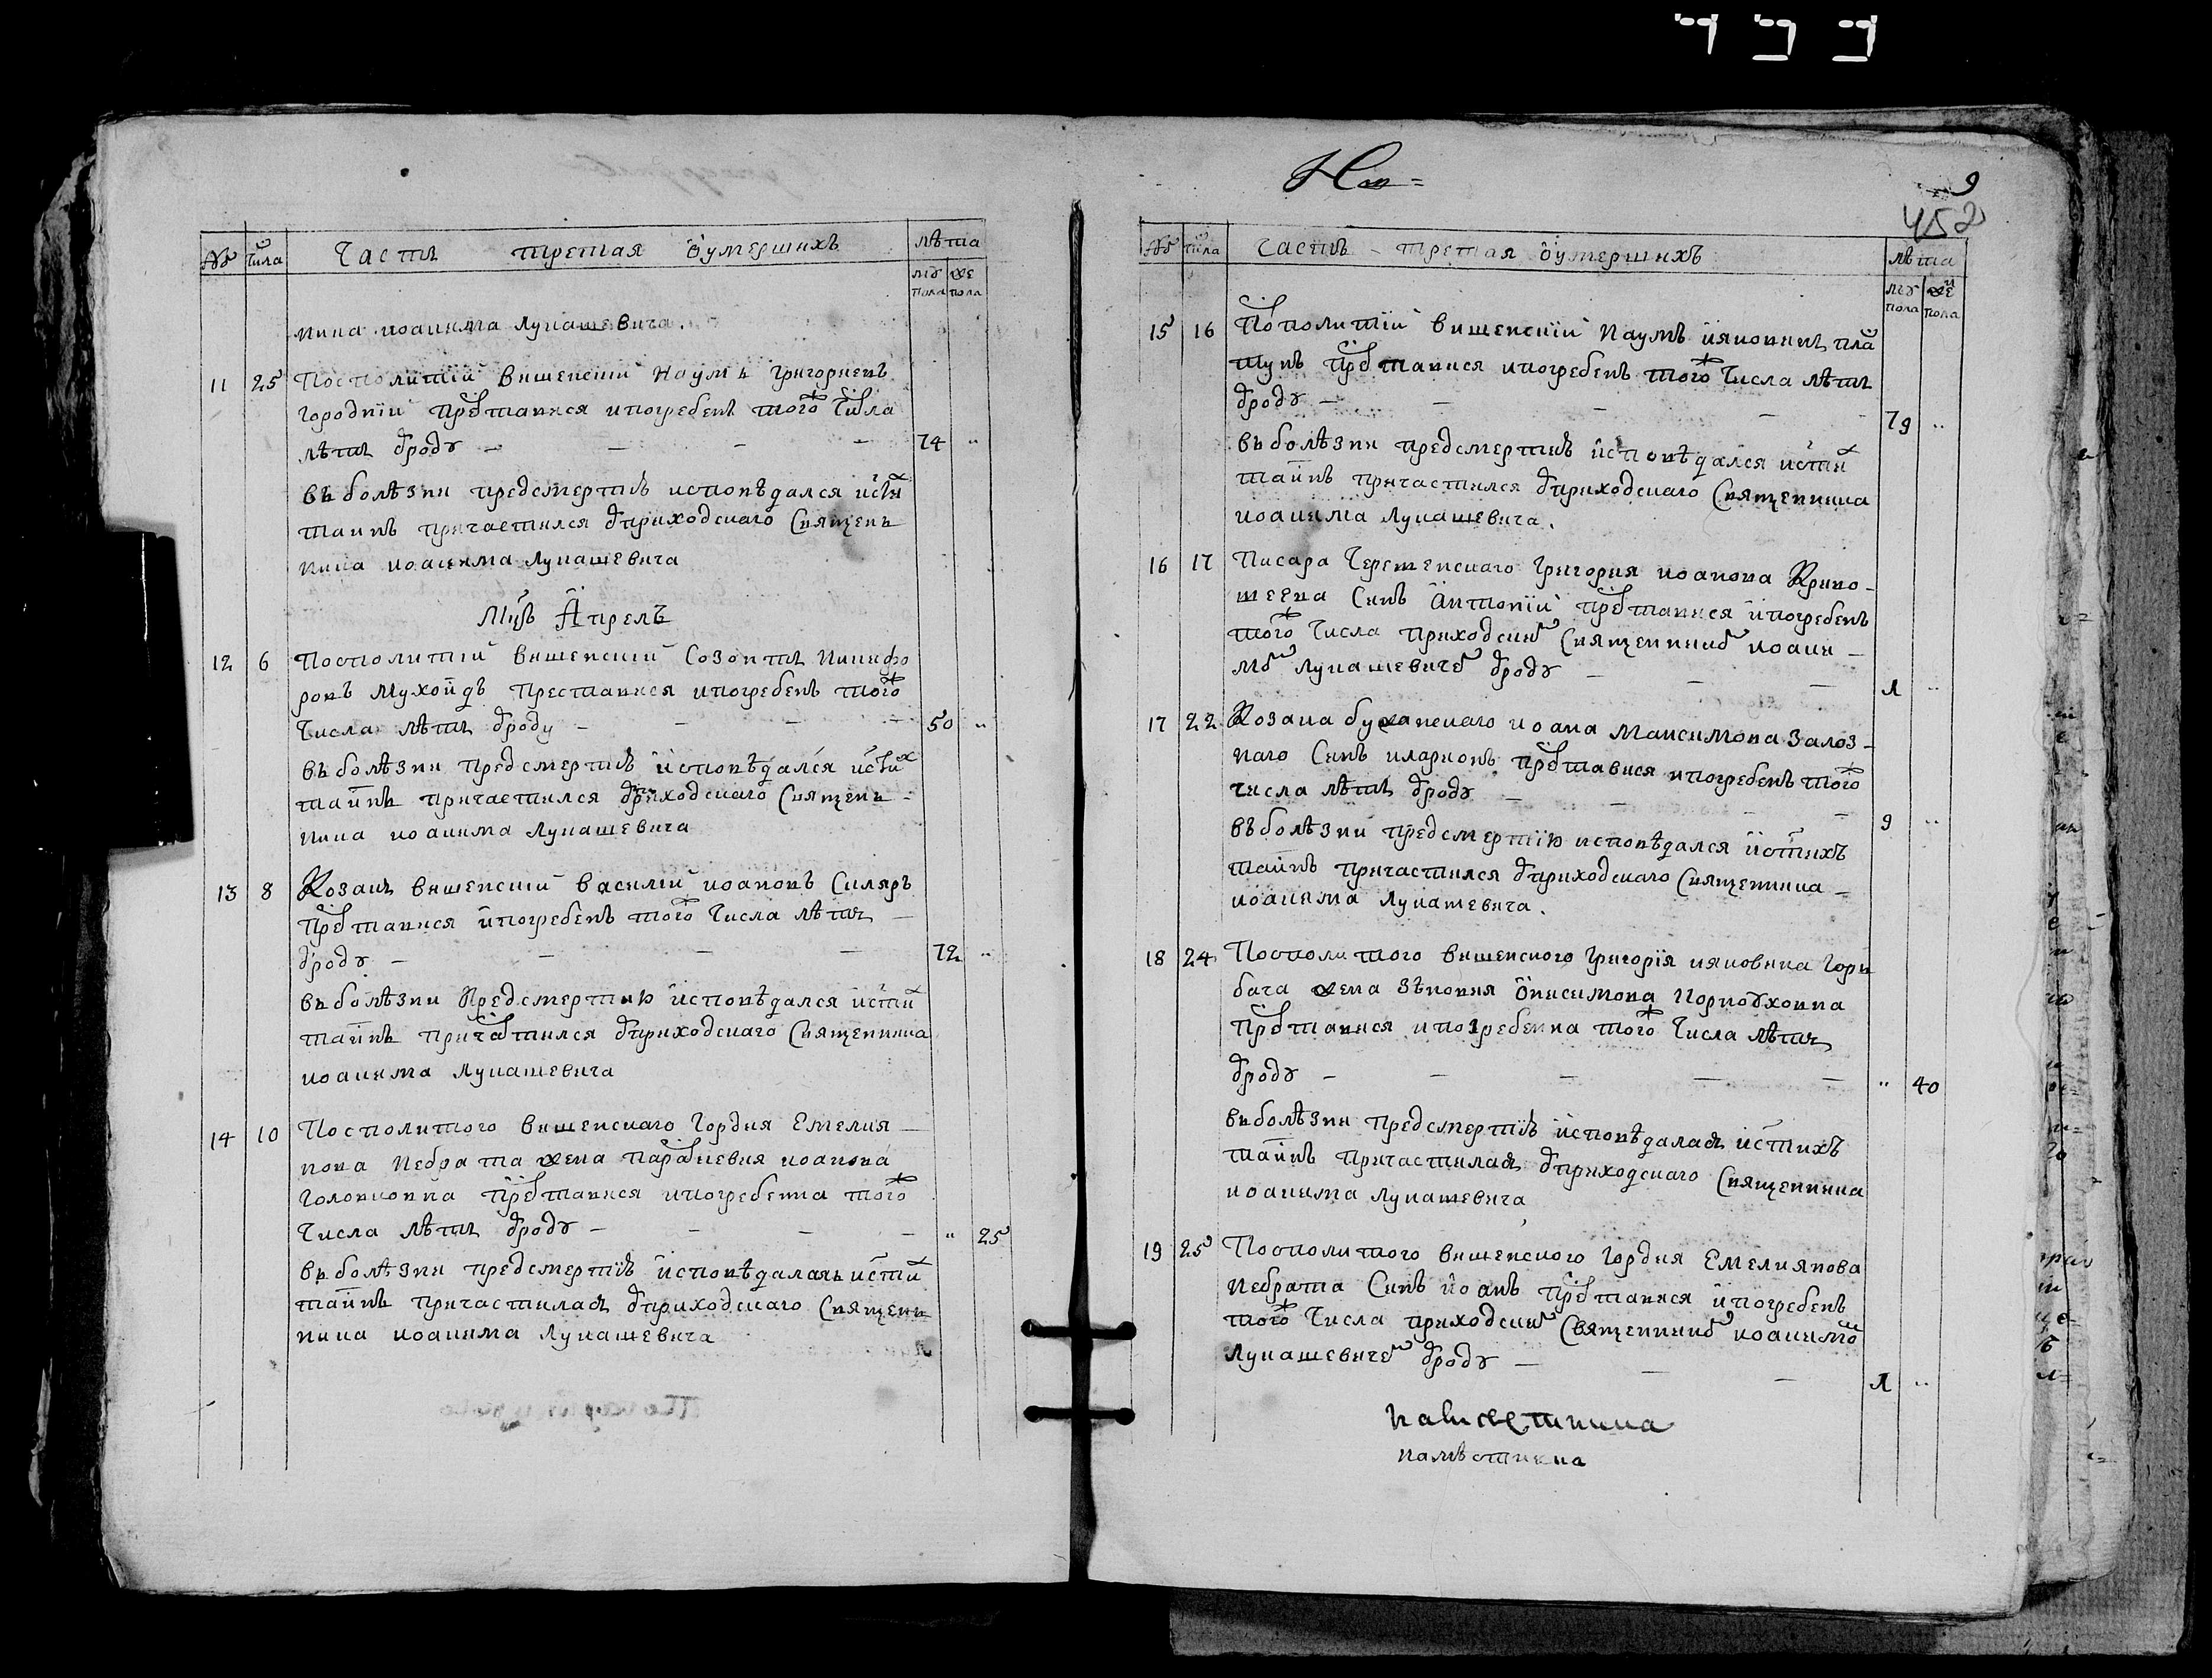 № числа Часть третая о умершихъ лѣта
му пола же пола
ника иоакима лукашевича.
11 25 Посполитій вишенскій Наумъ григориевъ
городній преставися и погребенъ того ж числа
лѣтъ ѿ роду 74 "
въ болѣзни предсмертнѣ исповѣдался и с͠тих
таинъ причастился ѿ приходскаго священъ
ника иоакима лукашевича
Мц҃ъ Апрелъ
12 6 Посполитій вишенскій Созонтъ никифо
ровъ мухоидъ преставися и погребенъ того ж
числа лѣтъ ѿ роду 50 "
въ болѣзни предсмертнѣ исповѣдался и с͠тих
таинъ причастился ѿ приходскаго священъ
ника иоакима лукашевича
13 8 Козакъ вишенскій василій иоановъ Скляръ
преставися и погребенъ того ж числа лѣтъ
ѿ роду 72 "
въ болѣзни предсмертнѣ исповѣдался и с͠тих
таинъ причастился ѿ приходскаго священника
иоакима лукашевича
14 10 Посполитого вишенскаго гордия Емелия
нова небрата жена параскевия иоанова
головковна преставися и погребенна того ж
числа лѣтъ ѿ роду " 25
въ болѣзни предсмертнѣ исповѣдалась и с͠тих
таинъ причастилась ѿ приходскаго священъ
ника иоакима лукашевича
На=
9
452
№ числа Часть третая о умершихъ лѣта
му пола же пола
15 16 Посполитій вишенскій Наумъ ияковивъ пла
тунъ преставися и погребенъ того ж числа лѣтъ
ѿ роду 79 "
въ болѣзни предсмертнѣ исповѣдался и с͠тих
таинъ причастился ѿ приходскаго священника
иоакима лукашевича.
16 17 Писара Григория иоанова Криво-
шеена синъ Антоній преставися и погребенъ
того ж числа приходскимъ священникомъ иоаки-
момъ лукашевичемъ ѿ роду 1 "
17 22 Козака бужанскаго иоана максимова залоз-
наго синъ иларионъ преставися и погребенъ того ж
числа лѣтъ ѿ роду 9 "
въ болѣзни предсмертнѣ исповѣдался и с͠тихъ
таинъ причастился ѿ приходскаго священника
иоакима лукашевича.
18 24 Посполитого вишенского григорія ияковича гори
бача жена зѣновия Онисимова Корноуховна
преставися и погребенна того ж числа лѣтъ
ѿ роду " 40
въ болѣзни предсмертнѣ исповѣдалась и с͠тихъ
таинъ причастилась ѿ приходскаго священника
иоакима лукашевича
19 25 Посполитого вишенского гордия Емелиянова
небрата синъ иоанъ преставися и погребенъ
того ж числа приходскимъ священникомъ иоакимомъ
лукашевичемъ ѿ роду 1 "
намѣстника